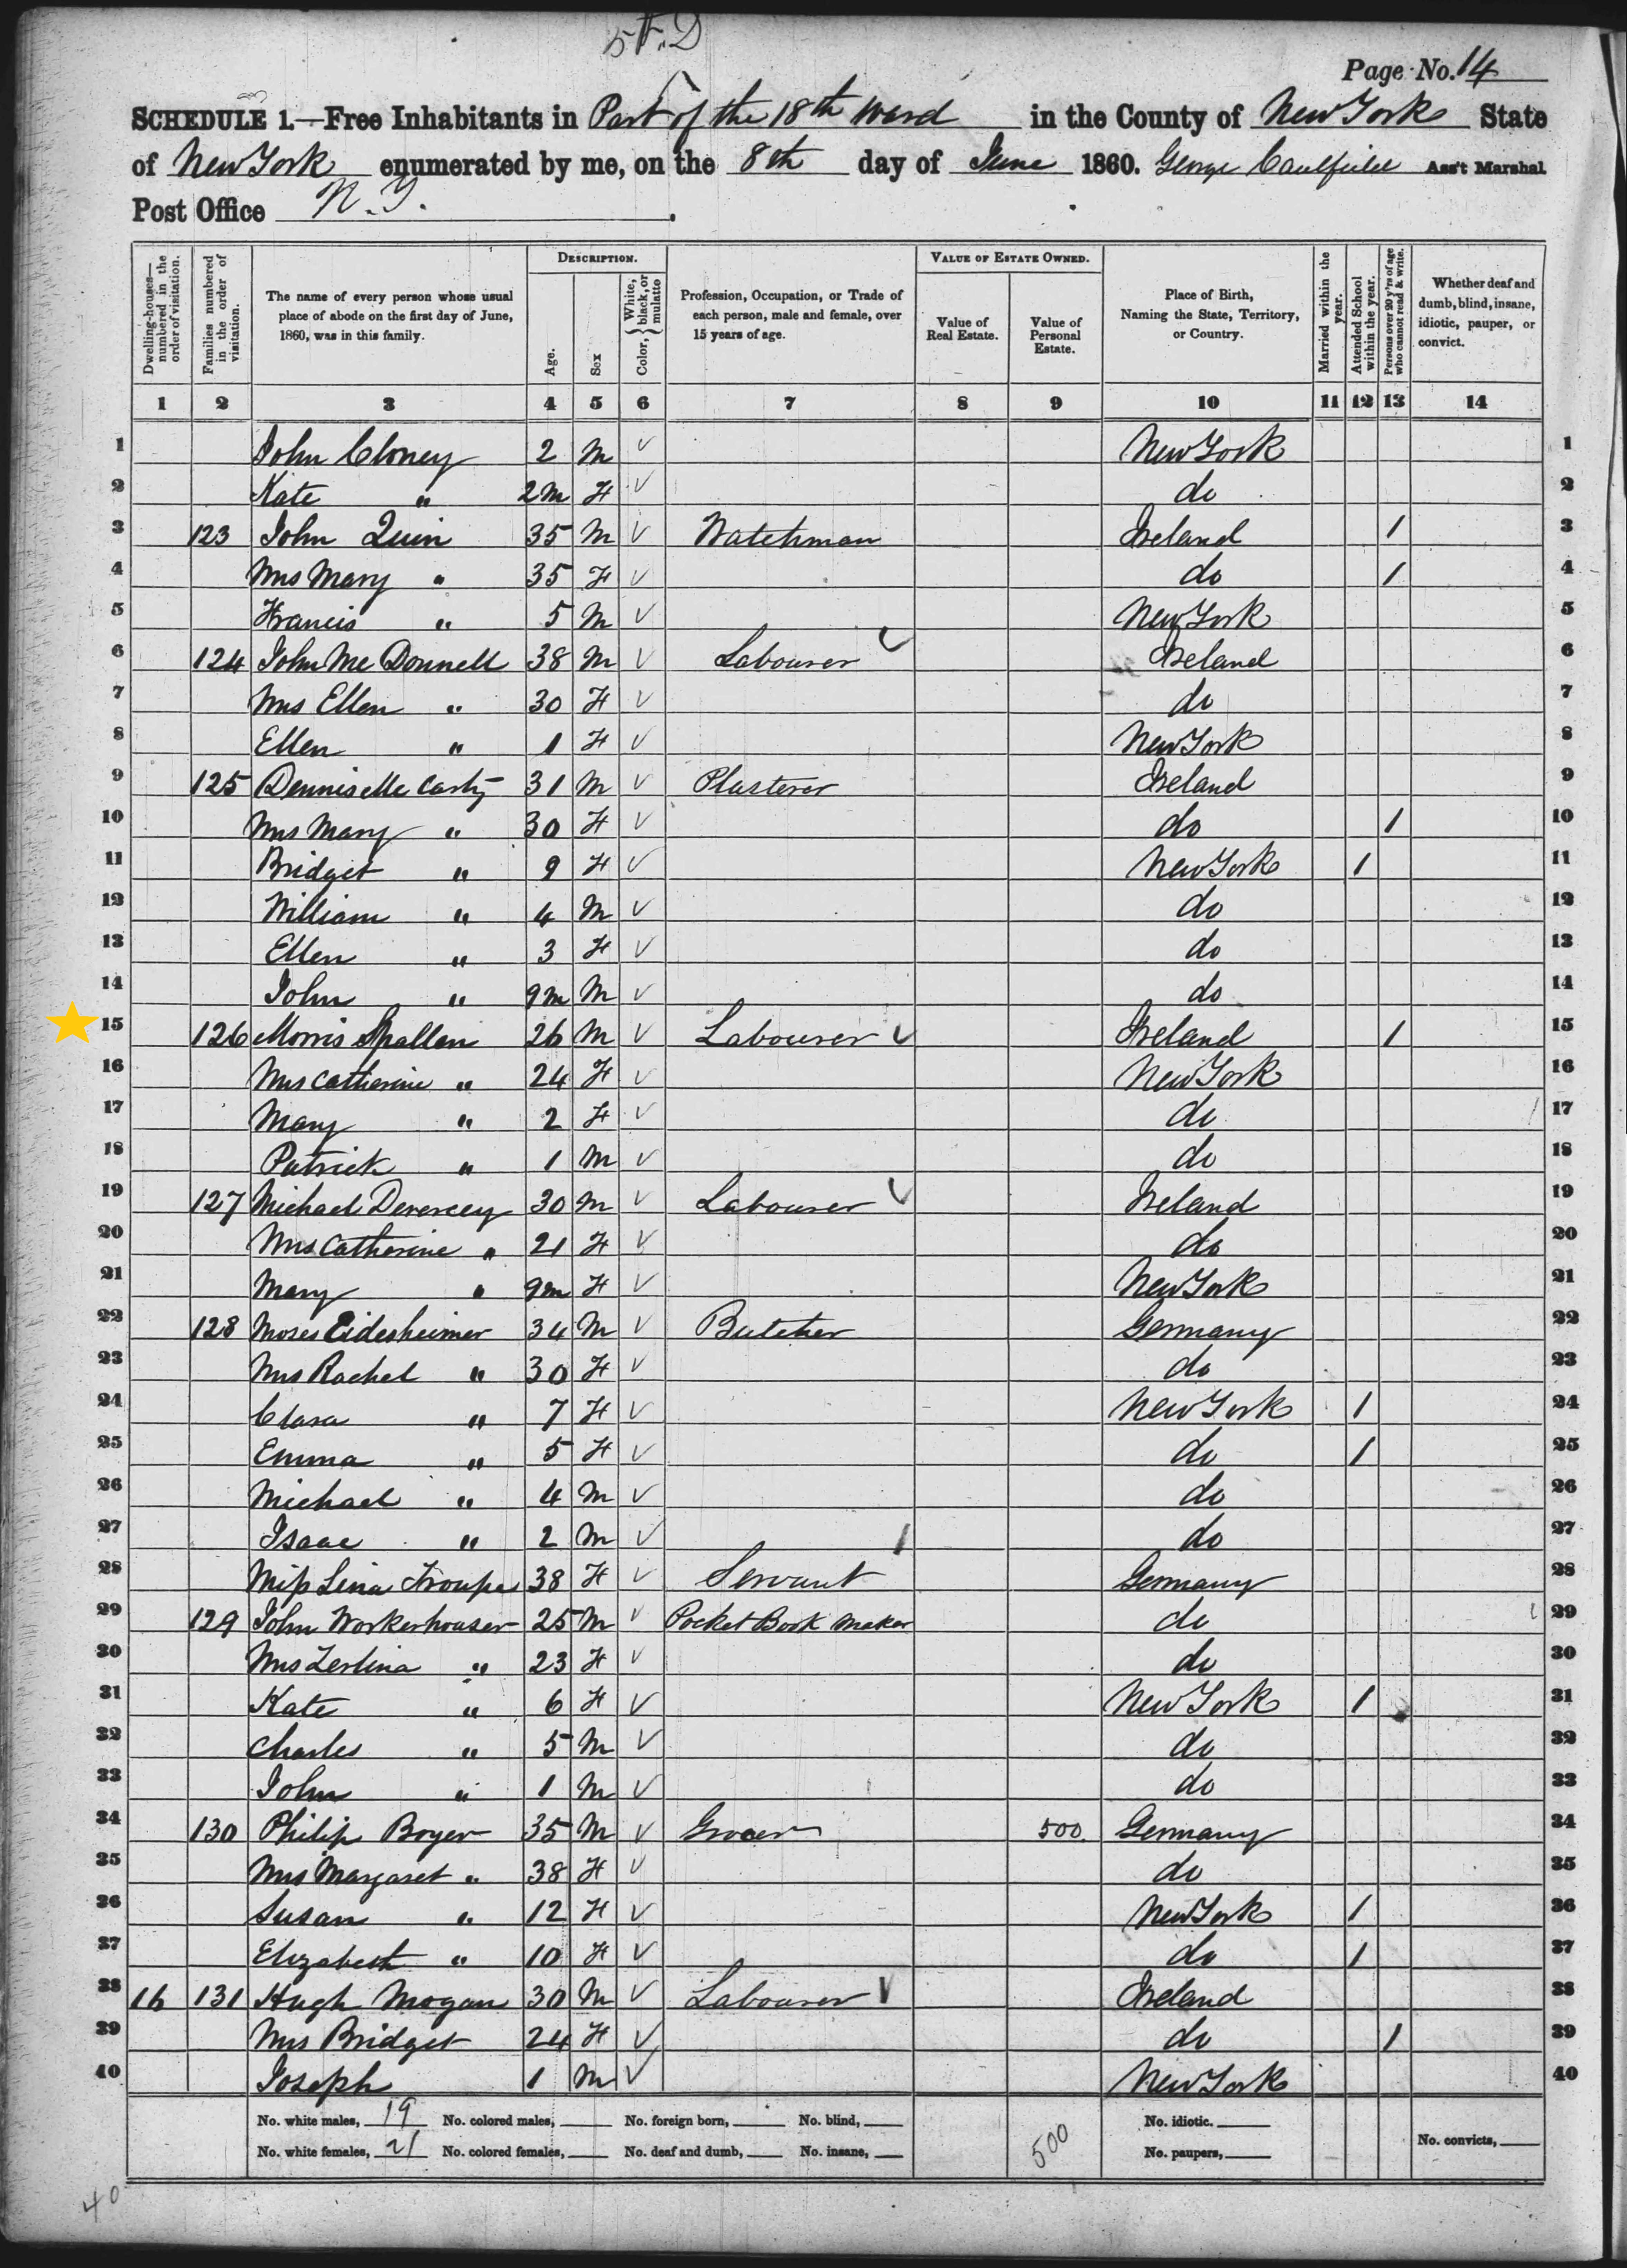 5th. D
Page No. 14
SCHEDULE 1.—Free Inhabitants in Part of the 18th Ward in the County of New York State
of New York enumerated by me, on the 8th day of June 1860. George Caulfield Ass't Marshal
Post Office N.Y.
Dwelling-houses—numbered in the order of visitation. Families numbered in the order of visitation. The name of every person whose usual place of abode on the first day of June, 1860, was in this family. DESCRIPTION. Age. Sex Color, { White, black, or mulatto Profession, Occupation, or Trade of each person, male and female, over 15 years of age. VALUE OF ESTATE OWNED. Value of Real Estate. Value of Personal Estate. Place of Birth, Naming the State, Territory, or Country. Married within the year. Attended School within the year. Persons over 20 y'rs of age who cannot read & write. Whether deaf and dumb, blind, insane, idiotic, pauper, or convict.
1 2 3 4 5 6 7 8 9 10 11 12 13 14
1 John Cloney 2 M ✓ New York 1
2 Kate " 2m F ✓ do 2
3 123 John Quin 35 M ✓ Watchman Ireland 1 3
4 Mrs Mary " 35 F ✓ do 1 4
5 Francis " 5 M ✓ New York 5
6 124 John Mc Donnell 38 M ✓ Labourer ✓ Ireland 6
7 Mrs Ellen " 30 F ✓ do 7
8 Ellen " 1 F ✓ New York 8
9 125 Dennis Mc Carty 31 M ✓ Plasterer Ireland 9
10 Mrs Mary " 30 F ✓ do 1 10
11 Bridget " 9 F ✓ New York 1 11
12 William " 4 M ✓ do 12
13 Ellen " 3 F ✓ do 13
14 John " 9m M ✓ do 14
15 126 Morris Spallen 26 M ✓ Labourer ✓ Ireland 1 15
16 Mrs Catherine " 24 F ✓ New York 16
17 Mary " 2 F ✓ do 17
18 Patrick " 1 M ✓ do 18
19 127 Michael Devercey 30 M ✓ Labourer ✓ Ireland 19
20 Mrs Catherine " 21 F ✓ do 20
21 Mary " 9m F ✓ New York 21
22 128 Moses Eidesheimer 34 M ✓ Butcher Germany 22
23 Mrs Rachel " 30 F ✓ do 23
24 Clara " 7 F ✓ New York 1 24
25 Emma " 5 F ✓ do 1 25
26 Michael " 4 M ✓ do 26
27 Isaac " 2 M ✓ do 27
28 Miss Lina Troupe 38 F ✓ Servant Germany 28
29 129 John Workerhouser 25 M ✓ Pocket Book Maker do 29
30 Mrs Zerlina " 23 F ✓ do 30
31 Kate " 6 F ✓ New York 1 31
32 Charles " 5 M ✓ do 32
33 John " 1 M ✓ do 33
34 130 Philip Boyer 35 M ✓ Grocer 500 Germany 34
35 Mrs Margaret " 38 F ✓ do 35
36 Susan " 12 F ✓ New York 1 36
37 Elizabeth " 10 F ✓ do 1 37
38 16 131 Hugh Mogan 30 M ✓ Labourer ✓ Ireland 38
39 Mrs Bridget 24 F ✓ do 1 39
40 Joseph 1 M ✓ New York 40
No. white males, 19 No. colored males, No. foreign born, No. blind, No. idiotic.
No. white females, 21 No. colored females, No. deaf and dumb, No. insane, 500 No. paupers, No. convicts,
40